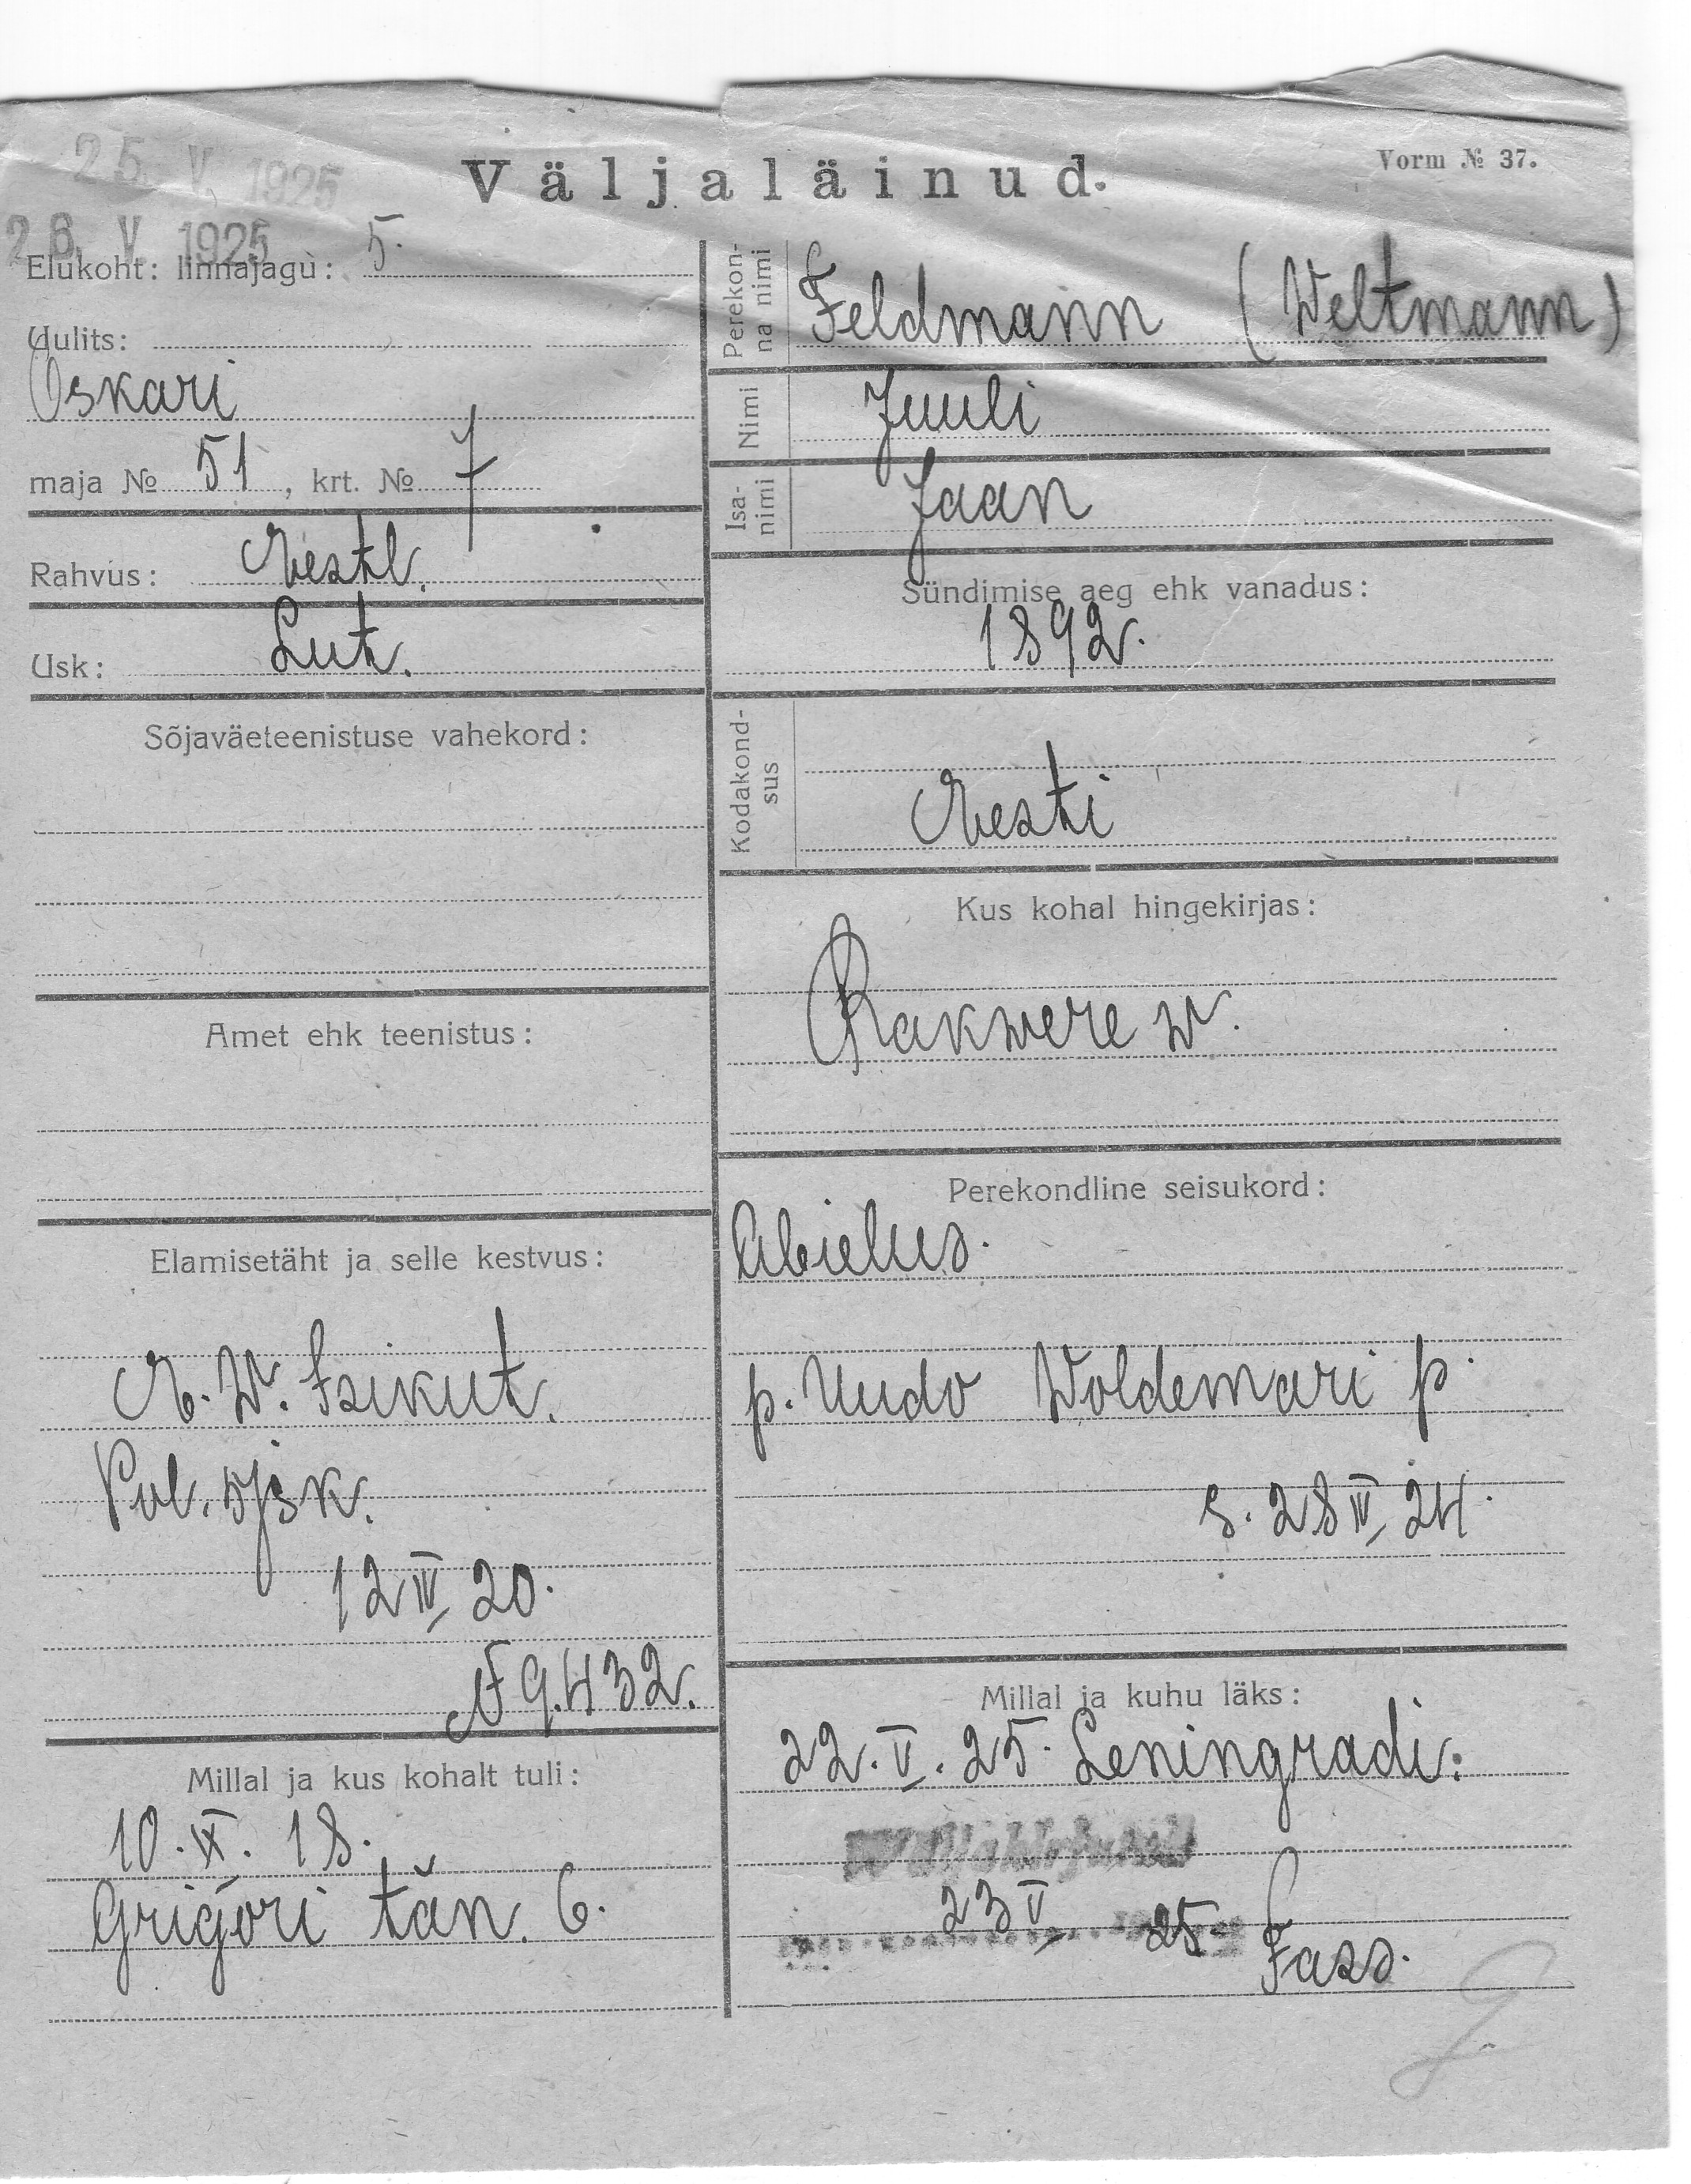 25. V. 1925
Väljaläinud.
Vorm № 37.
26. V. 1925
Elukoht: linnajagu: 5.
Uulits:
Oskari
maja № 51, krt. № 7
Rahvus: Eestl.
Usk: Lut.
Sõjaväeteenistuse vahekord:
Amet ehk teenistus:
Elamisetäht ja selle kestvus:
E. W. Isikut.
Pol. 5jsk.
12 IV 20.
N 9.432.
Millal ja kus kohalt tuli:
10. IX. 18.
Grigori tän. 6.
Perekon-
na nimi
Feldmann (Weltmann)
Nimi
Juuli
Isa-
nimi
Jaan
Sündimise aeg ehk vanadus:
1892.
Kodakond-
sus
Eesti
Kus kohal hingekirjas:
Rakwere w.
Perekondline seisukord:
Abielus.
p. Uudo Woldemari p.
s. 28 IV 24.
Millal ja kuhu läks:
22. V. 25. Leningradi.
23 V 25.
Fass.